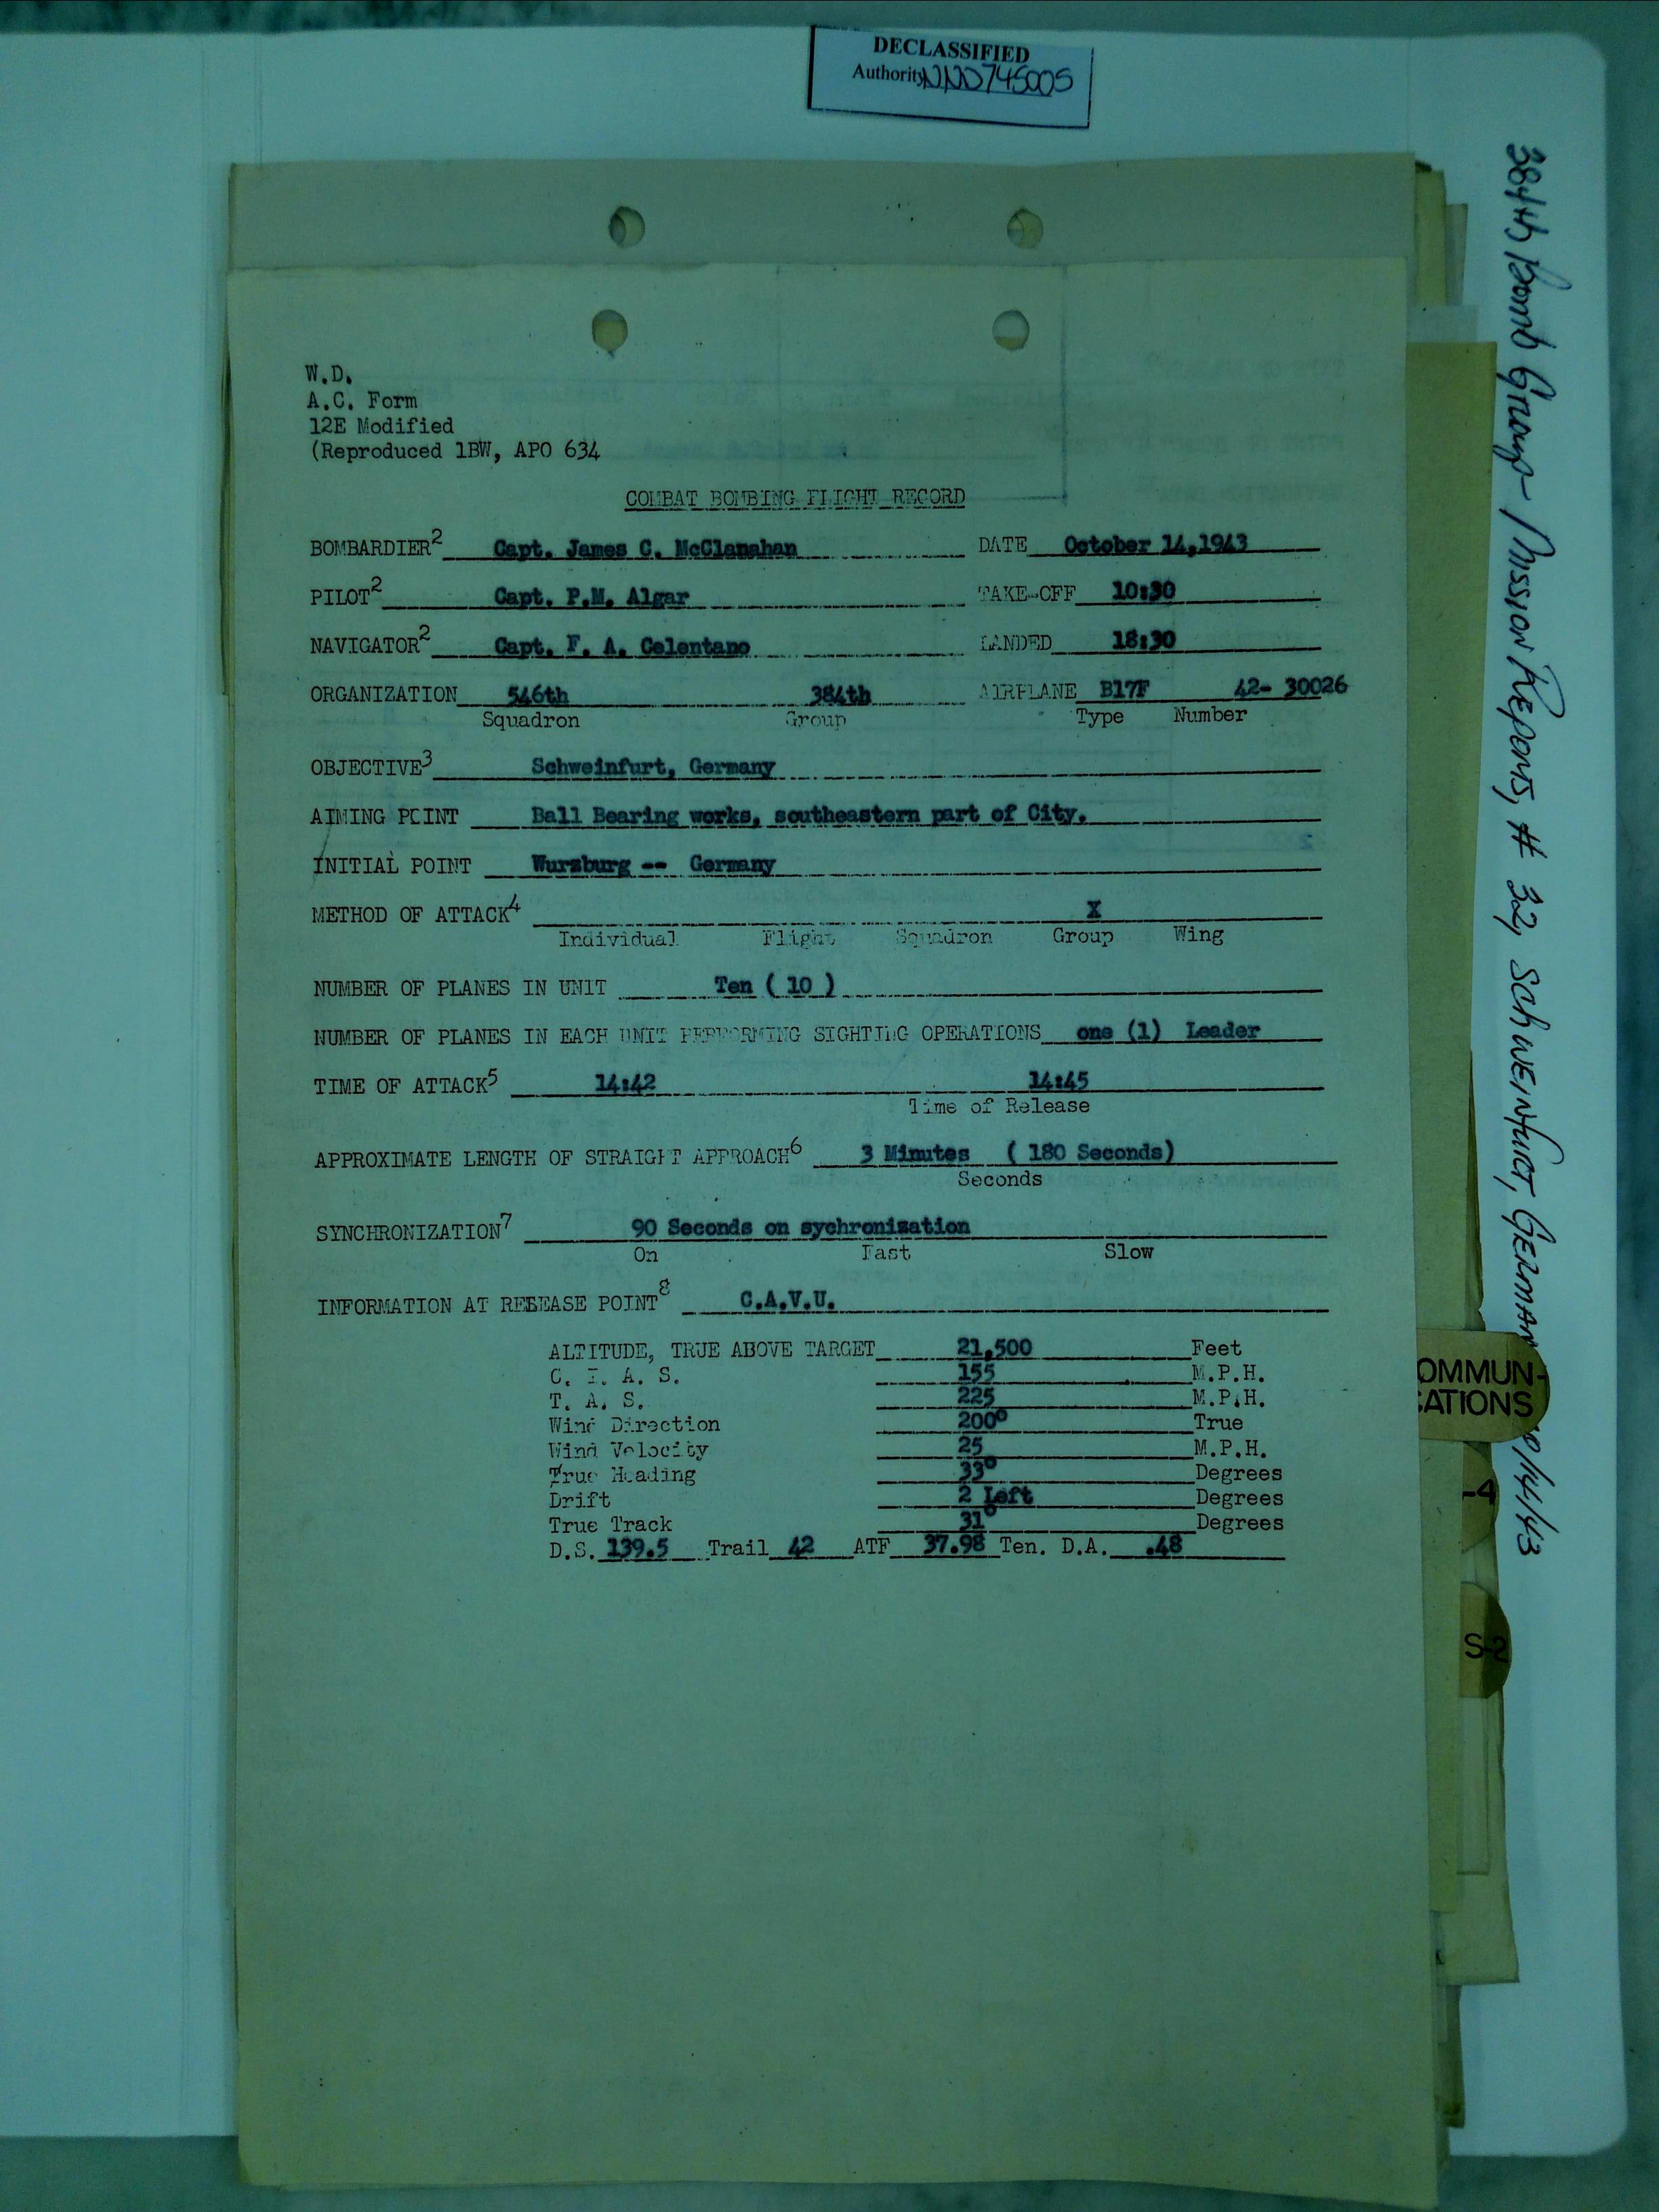 DECLASSIFIED
Authority NND745005
384th Bomb Group - Mission Reports, # 32, Schweinfurt, Germany 10/14/43
W.D.
A.C. Form
12E Modified
(Reproduced 1BW, APO 634
COMBAT BOMBING FLIGHT RECORD
BOMBARDIER2 Capt. James C. McClanahan DATE October 14,1943
PILOT2 Capt. P.M. Algar TAKE-OFF 10:30
NAVIGATOR2 Capt. F. A. Celentano LANDED 18:30
ORGANIZATION 546th 384th AIRPLANE B17F 42- 30026
Squadron Group Type Number
OBJECTIVE3 Schweinfurt, Germany
AIMING POINT Ball Bearing works, southeastern part of City.
INITIAL POINT Wurzburg -- Germany
METHOD OF ATTACK4 X
Individual Flight Squadron Group Wing
NUMBER OF PLANES IN UNIT Ten ( 10 )
NUMBER OF PLANES IN EACH UNIT PERFORMING SIGHTING OPERATIONS one (1) Leader
TIME OF ATTACK5 14:42 14:45
Time of Release
APPROXIMATE LENGTH OF STRAIGHT APPROACH6 3 Minutes ( 180 Seconds)
Seconds
SYNCHRONIZATION7 90 Seconds on sychronization
On Fast Slow
INFORMATION AT RELEASE POINT8 C.A.V.U.
ALTITUDE, TRUE ABOVE TARGET 21,500 Feet
C. I. A. S. 155 M.P.H.
T. A. S. 225 M.P.H.
Wind Direction 200° True
Wind Velocity 25 M.P.H.
True Heading 33° Degrees
Drift 2 Left Degrees
True Track 31° Degrees
D.S. 139.5 Trail 42 ATF 37.98 Ten. D.A. .48
OMMUN-
CATIONS
-4
S-2